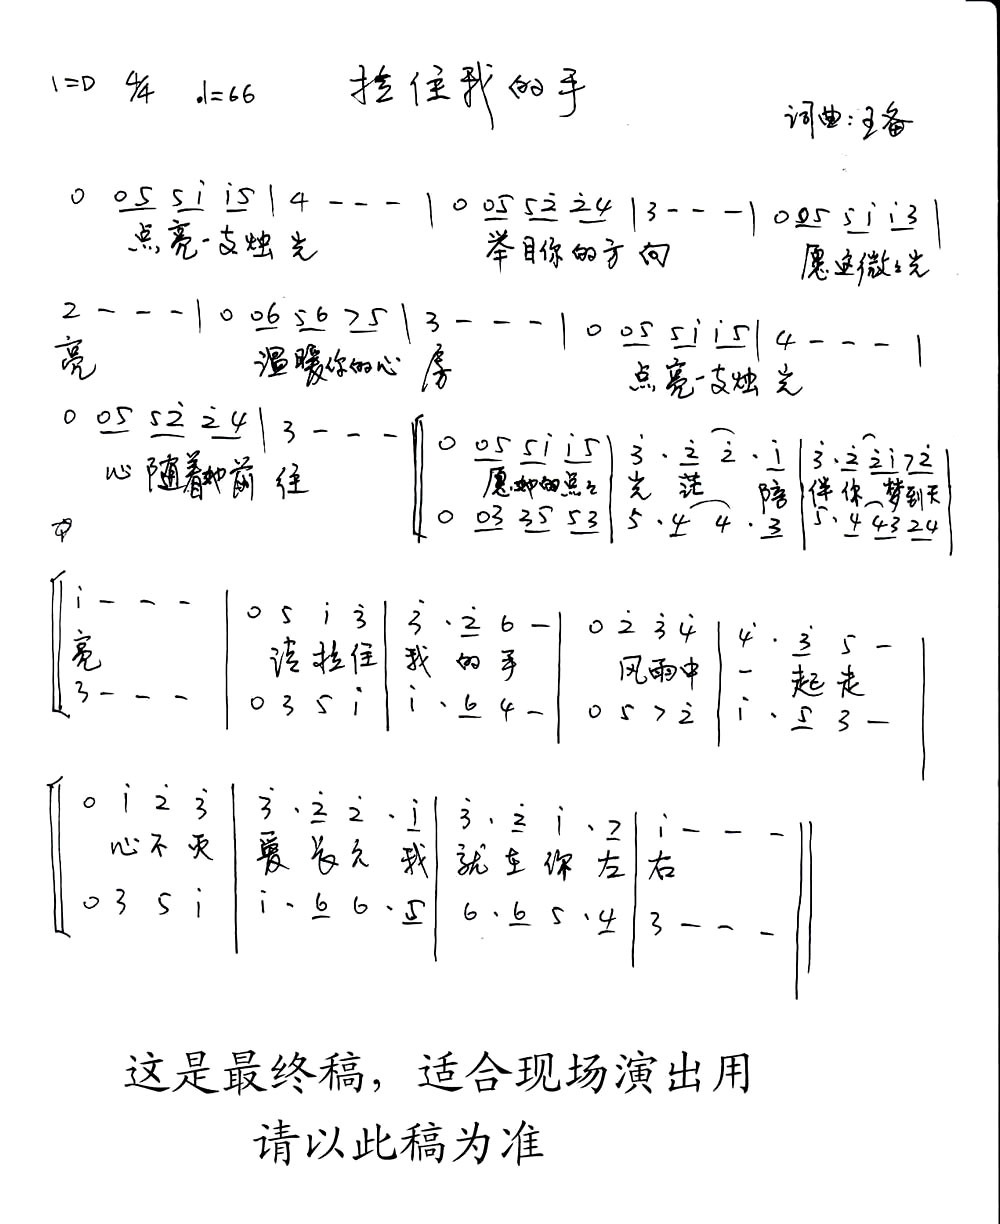 1=D 4/4 ♩=66 拉住我的手
词曲:王备
0 05 5i i5 | 4 - - - | 0 05 52 24 | 3 - - - | 0 05 5i i3 |
点亮一支烛光 举目你的方向 愿这微微光
2 - - - | 0 06 56 75 | 3 - - - | 0 05 5i i5 | 4 - - - |
亮 温暖你的心房 点亮一支烛光
0 05 52 24 | 3 - - - 0 05 5i i5 | 3·2 2·i | 3·2 2i72 |
心随着她前往 愿她的点点 光茫 陪伴你 梦到天
0 03 35 53 | 5·4 4·3 | 5·4 43 24 |
i - - - | 0 5 i 3 | 3·2 6 - | 0 2 3 4 | 4·3 5 - |
亮 请拉住我的手 风雨中一起走
3 - - - | 0 3 5 i | i·6 4 - | 0 5 7 2 | i·5 3 - |
0 i 2 3 | 3·2 2·i | 3·2 i·7 | i - - - ||
心不灭 爱长久 我就在你左右
0 3 5 i | i·6 6·5 | 6·6 5·4 | 3 - - - ||
这是最终稿，适合现场演出用
请以此稿为准